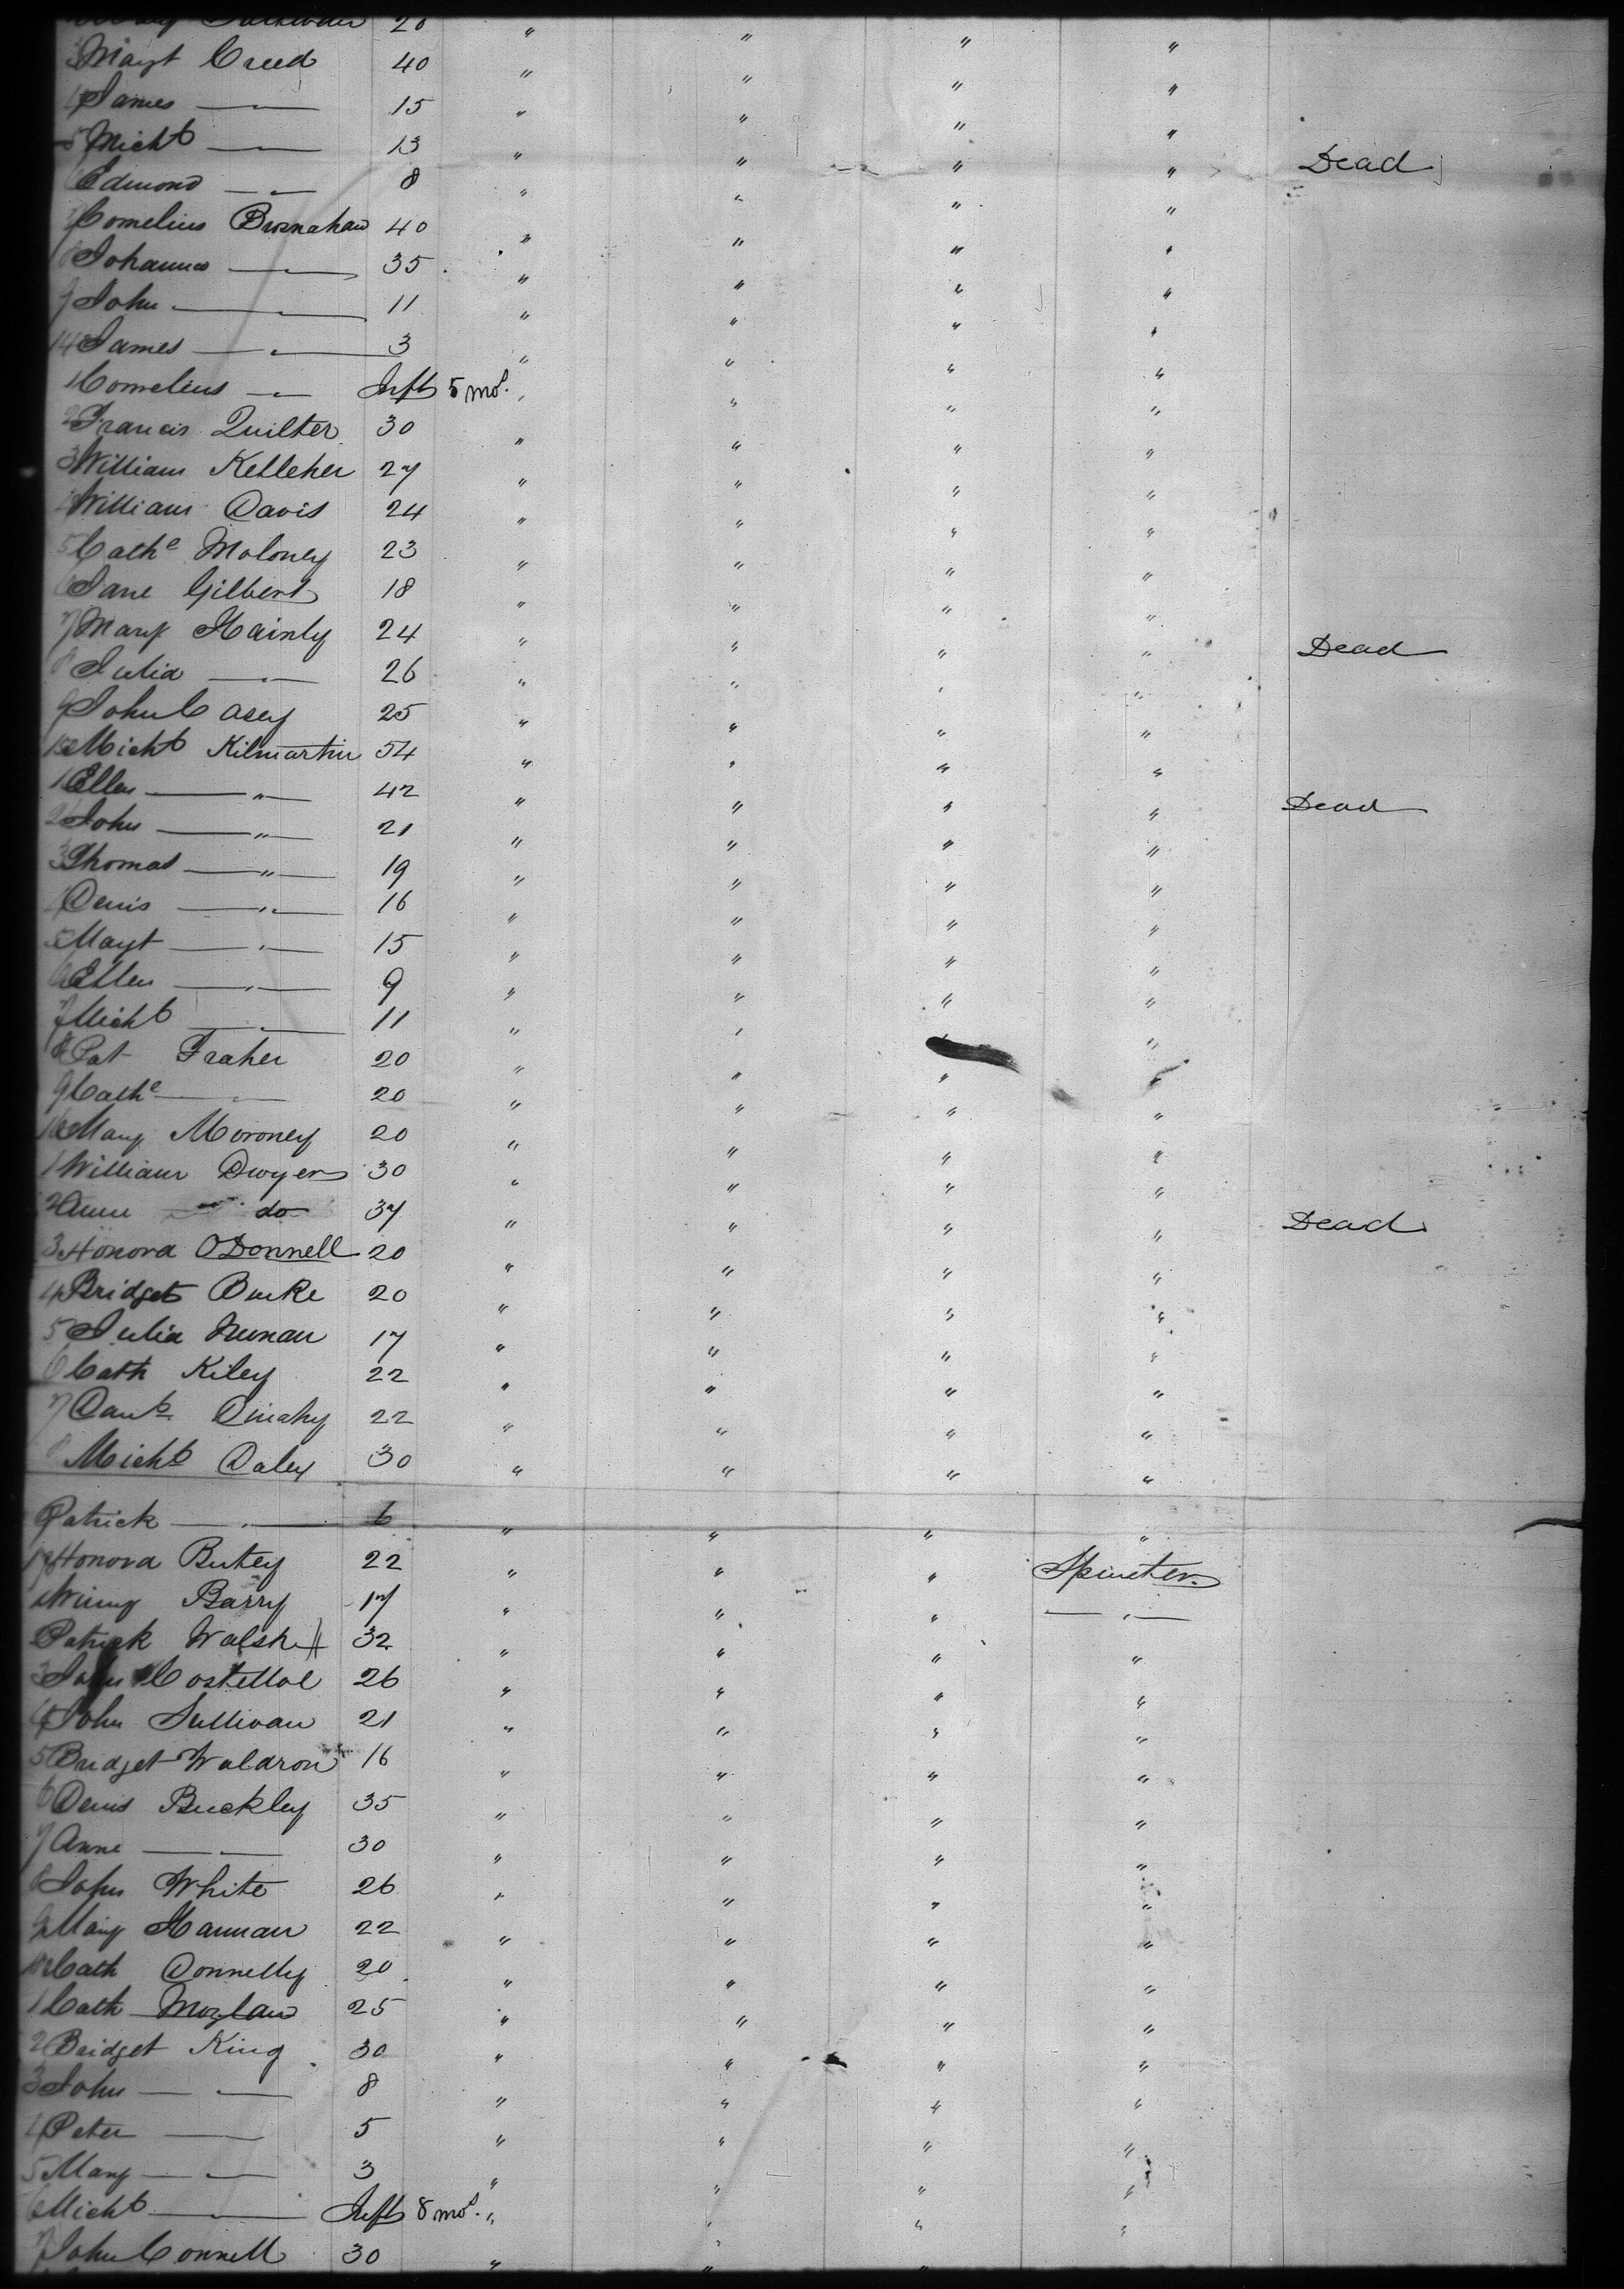 20 " " " "
3 Margt Creed 40 " " " "
4 James — " — 15 " " " "
5 Michl — " — 13 " " " " Dead
6 Edmond — " — 8 " " " "
7 Cornelius Brosnahan 40 " " " "
8 Johanna — " — 35 " " " "
9 John — " — 11 " " " "
14 James — " — 3 " " " "
1 Cornelius — " — Inft 5 mos. " " " "
2 Francis Quilter 30 " " " "
3 William Kelleher 27 " " " "
4 William Davis 24 " " " "
5 Cathe Moloney 23 " " " "
6 Jane Gilbert 18 " " " "
7 Mary Hainly 24 " " " " Dead
8 Julia — " — 26 " " " "
9 John Casey 25 " " " "
15 Michl Kilmartin 54 " " " "
1 Ellen — " — 42 " " " " Dead
2 John — " — 21 " " " "
3 Thomas — " — 19 " " " "
4 Denis — " — 16 " " " "
5 Margt — " — 15 " " " "
6 Ellen — " — 9 " " " "
7 Michl — " — 11 " " "
8 Pat Fraher 20 " " " "
9 Cathe — " — 20 " " " "
16 Mary Moroney 20 " " " "
1 William Dwyer 30 " " " "
2 Anne do 37 " " " " Dead
3 Honora ODonnell 20 " " " "
4 Bridget Burke 20 " " " "
5 Julia Nunan 17 " " " "
6 Cath Kiley 22 " " " "
7 Danl Dinahy 22 " " " "
8 Michl Daley 30 " " " "
Patrick — " — 6 " " " "
Honora Butey 22 " " " Spinster
1 Winny Barry 17 " " " — " —
Patrick Walsh 32 " " " "
3 John Costelloe 26 " " " "
4 John Sullivan 21 " " " "
5 Bridget Waldron 16 " " " "
6 Denis Buckley 35 " " " "
7 Anne — " — 30 " " " "
8 John White 26 " " " "
9 Mary Hannan 22 " " " "
Cath Donnelly 20 " " " "
1 Cath Moylan 25 " " " "
2 Bridget King 30 " " " "
3 John — " — 8 " " " "
4 Peter — 5 " " " "
5 Mary — " — 3 " " " "
6 Michl — " — Inft 8 mos. " " " "
7 John Connell 30 " " "